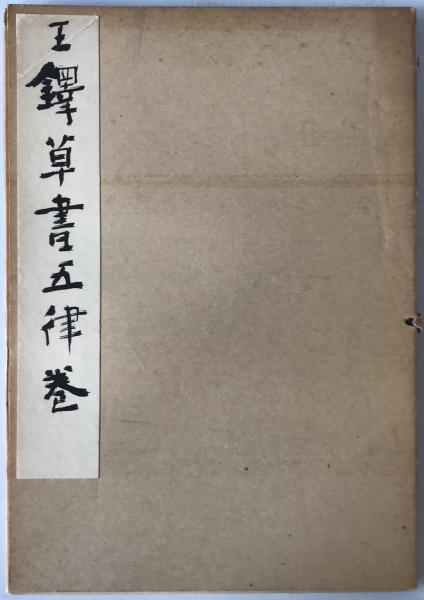 王鐸草書五律卷